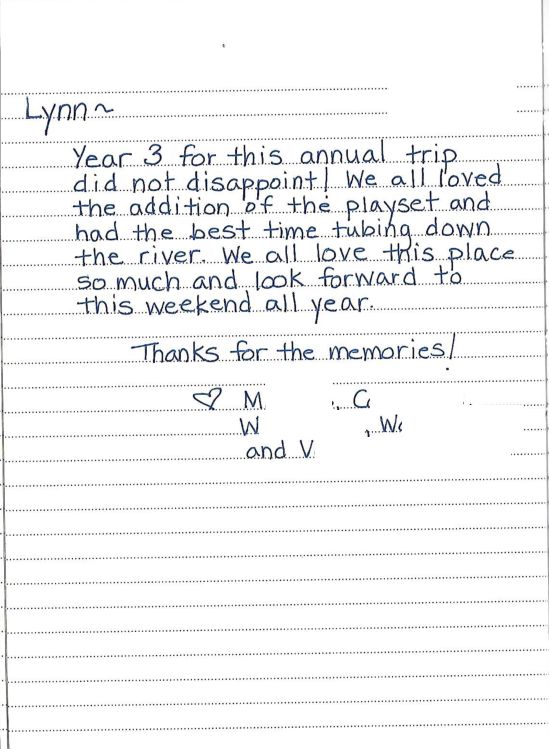 Lynn~
Year 3 for this annual trip
did not disappoint! We all loved
the addition of the playset and
had the best time tubing down
the river. We all love this place
so much and look forward to
this weekend all year.
Thanks for the memories!
♡ M C
W , We
and V